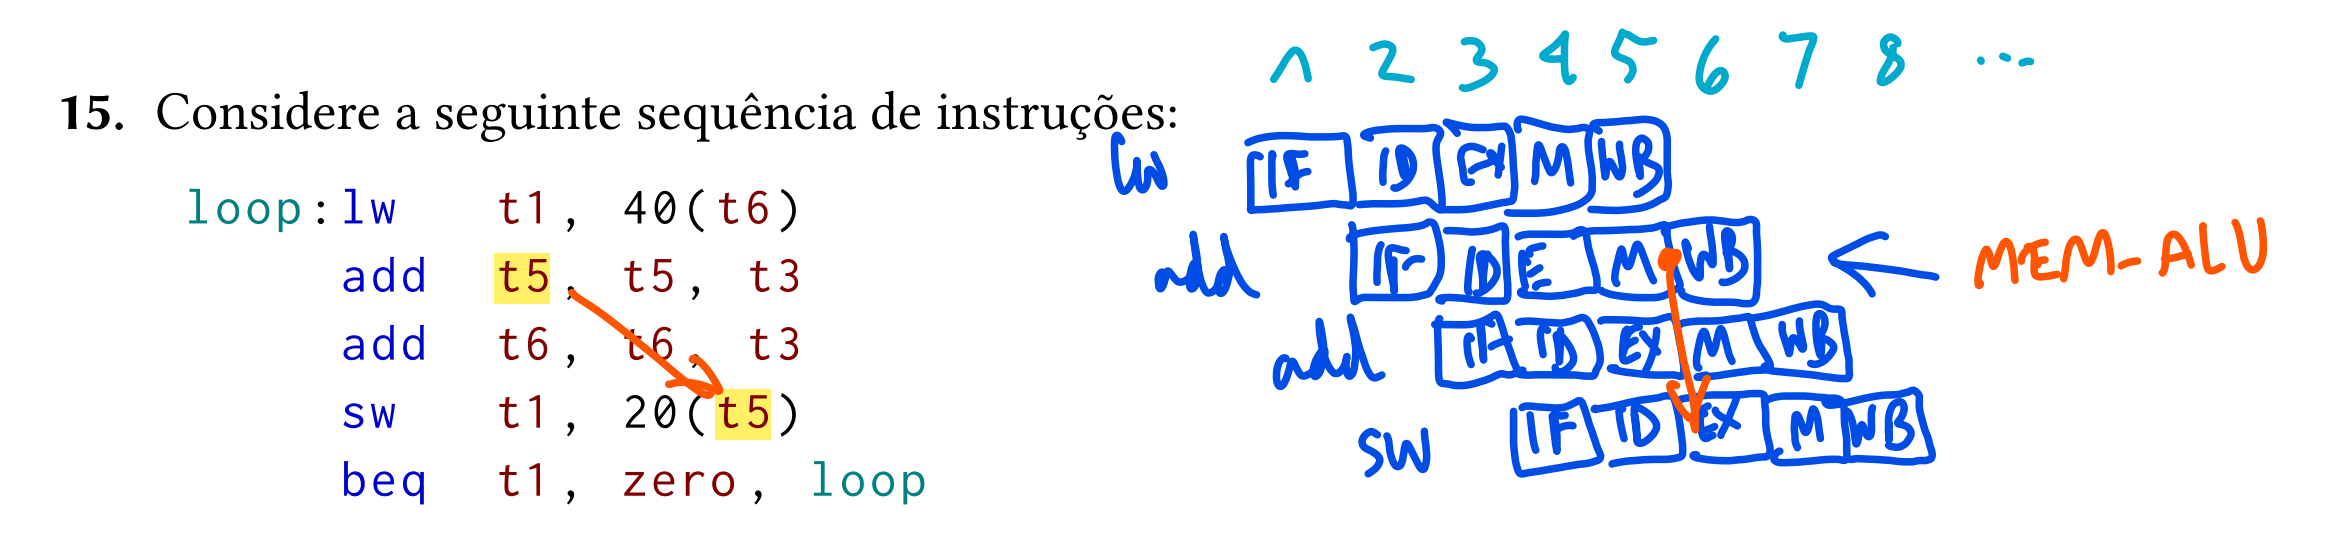 1 2 3 4 5 6 7 8 ...
15. Considere a seguinte sequência de instruções:
loop: lw t1, 40(t6)
add t5, t5, t3
add t6, t6, t3
sw t1, 20(t5)
beq t1, zero, loop
lw IF ID EX M WB
add IF ID E M WB MEM-ALU
add IF ID EX M WB
sw IF ID EX M WB